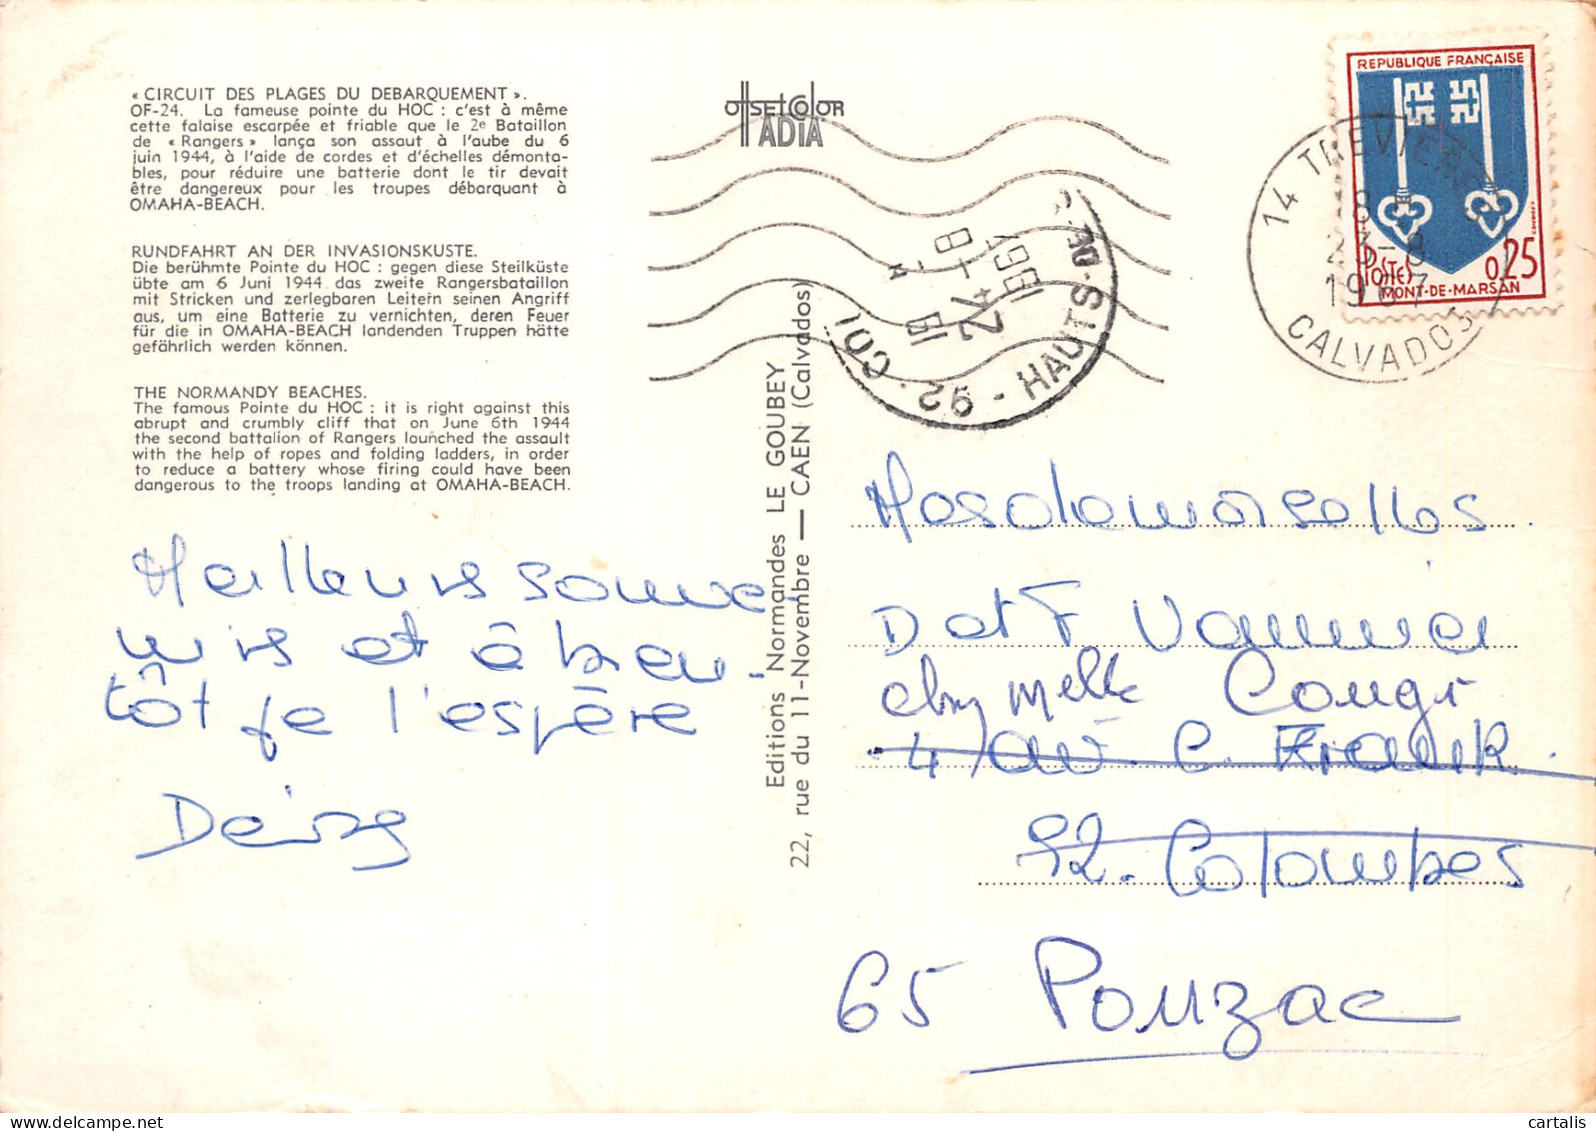 « CIRCUIT DES PLAGES DU DEBARQUEMENT ».
OF-24. La fameuse pointe du HOC : c'est à même
cette falaise escarpée et friable que le 2e Bataillon
de « Rangers » lança son assaut à l'aube du 6
juin 1944, à l'aide de cordes et d'échelles démonta-
bles, pour réduire une batterie dont le tir devait
être dangereux pour les troupes débarquant à
OMAHA-BEACH.
RUNDFAHRT AN DER INVASIONSKUSTE.
Die berühmte Pointe du HOC : gegen diese Steilküste
übte am 6 Juni 1944 das zweite Rangersbataillon
mit Stricken und zerlegbaren Leitern seinen Angriff
aus, um eine Batterie zu vernichten, deren Feuer
für die in OMAHA-BEACH landenden Truppen hätte
gefährlich werden können.
THE NORMANDY BEACHES.
The famous Pointe du HOC : it is right against this
abrupt and crumbly cliff that on June 6th 1944
the second battalion of Rangers lounched the assault
with the help of ropes and folding ladders, in order
to reduce a battery whose firing could have been
dangerous to the troops landing at OMAHA-BEACH.
Meilleurs souve-
nirs et à bien-
tôt je l'espère
Editions Normandes LE GOUBEY
22, rue du 11-Novembre — CAEN (Calvados)
offsetcolor
ADIA
92 - HAUTS-DE-
REPUBLIQUE FRANÇAISE
POSTES
0,25
MONT-DE-MARSAN
14 TREVIERES
8
23-8
1967
CALVADOS
Mesdemoiselles
D et F Vannier
chez Melle Cougi
4 av C. Franck
92. Colombes
65 Pouzac
cartalis